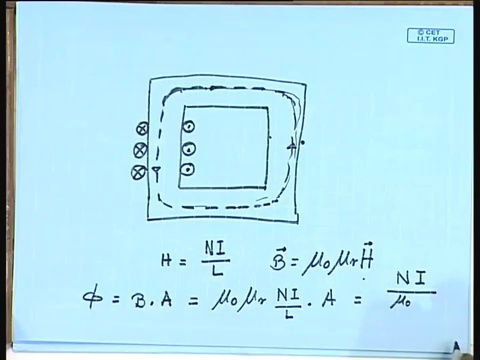 © CET
I.I.T. KGP
H = NI/L    B⃗ = μ₀μrH⃗
Φ = B . A = μ₀μr NI/L . A = NI/μ₀